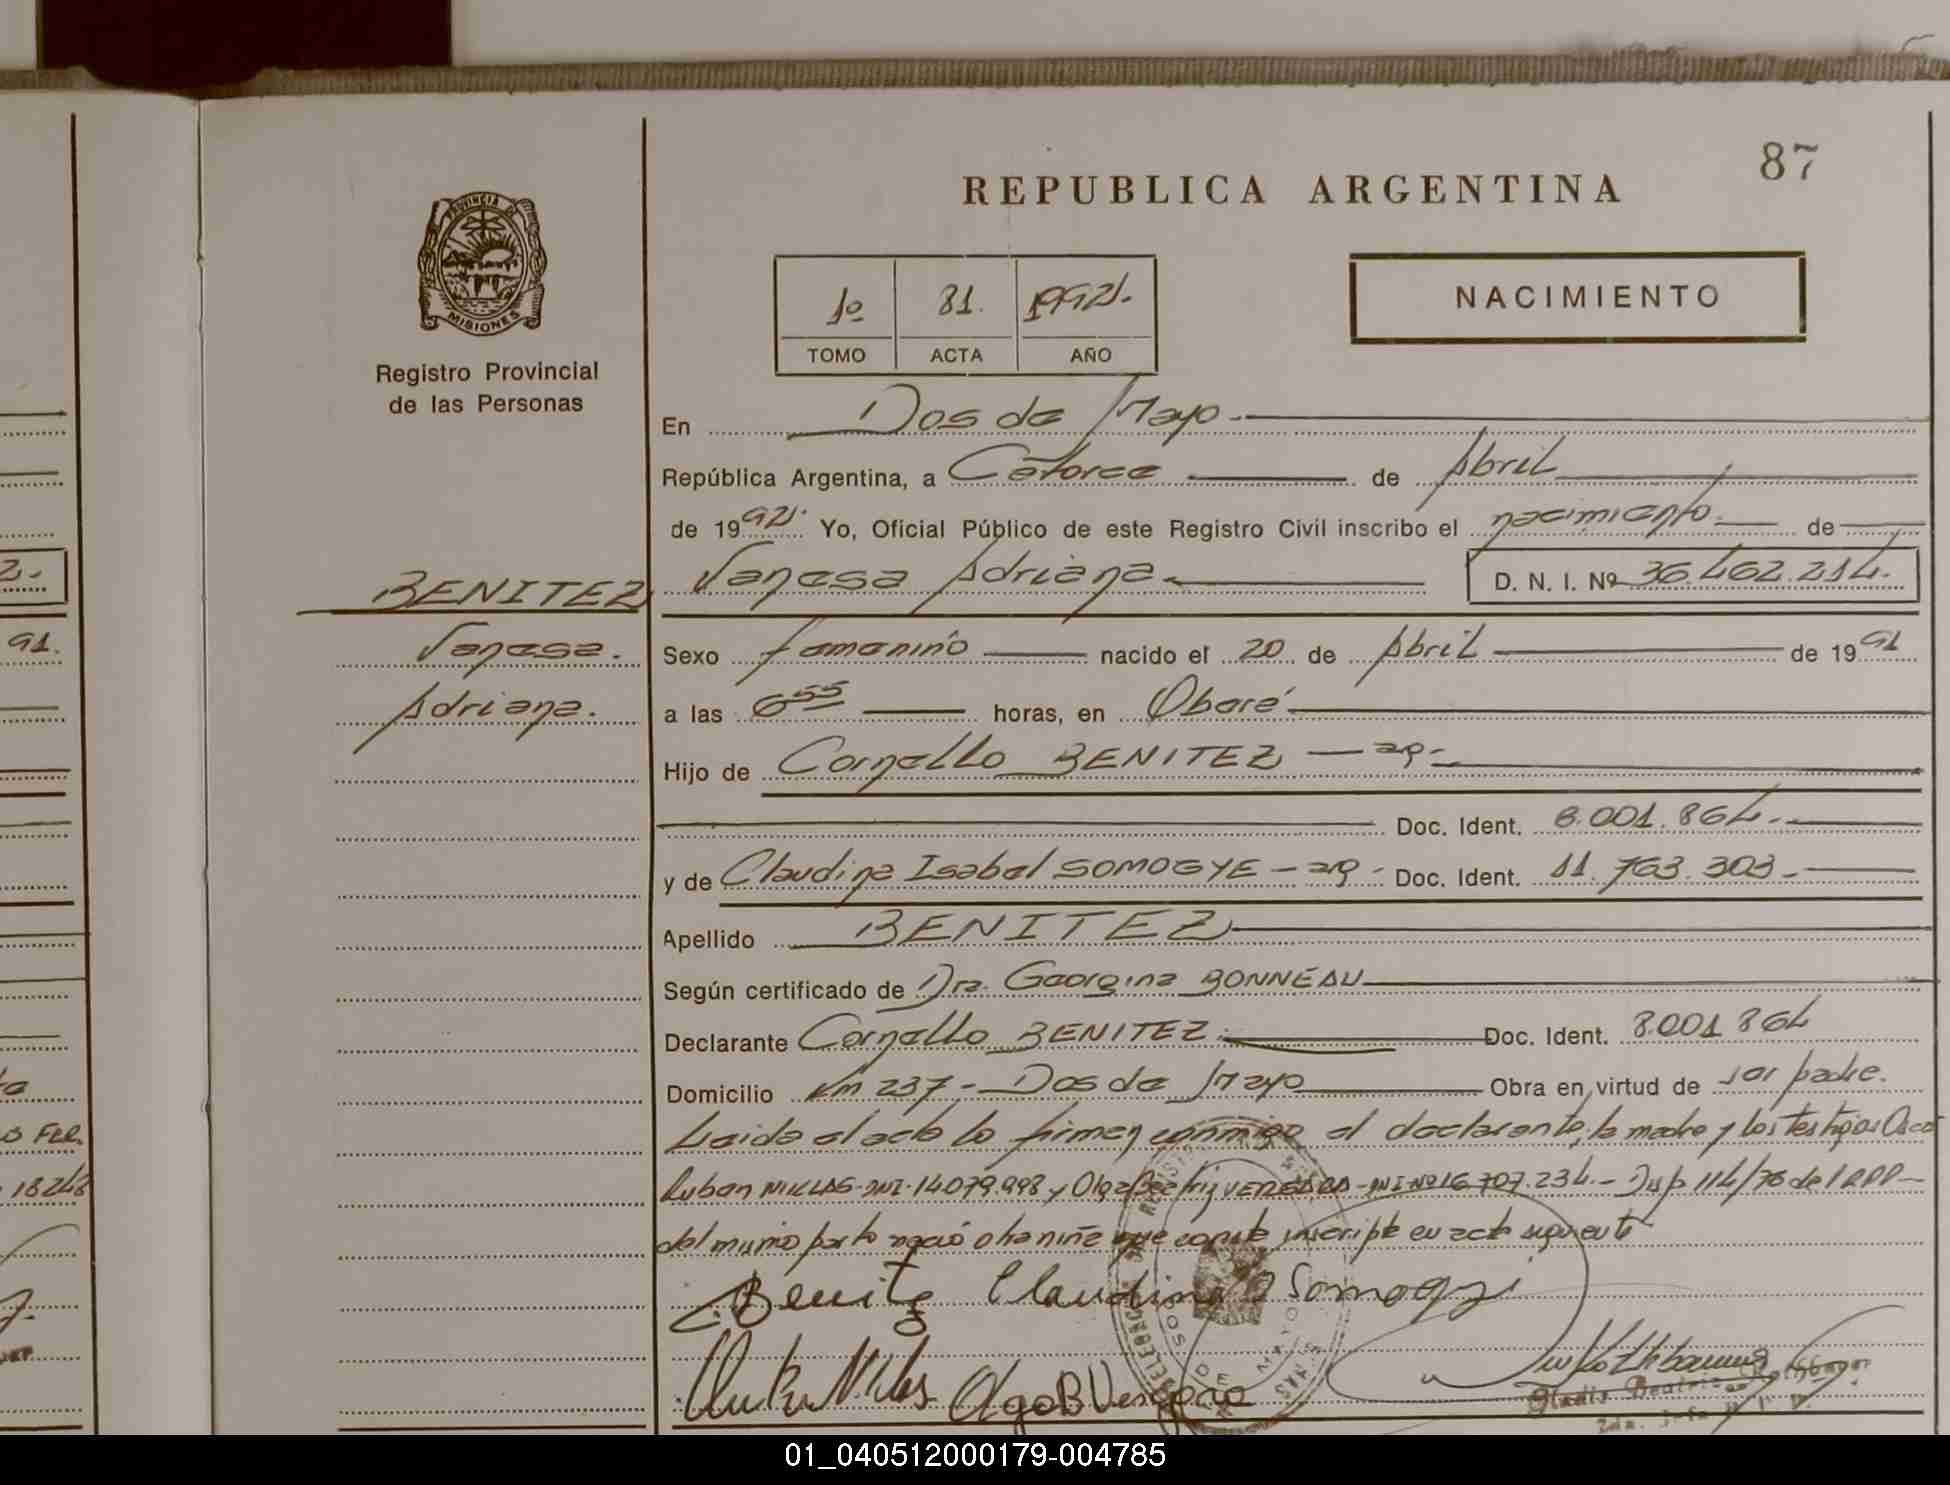 87
REPUBLICA ARGENTINA
PROVINCIA DE
MISIONES
Registro Provincial
de las Personas
1º 81. 1992.
TOMO ACTA AÑO
NACIMIENTO
En Dos de Mayo.-
República Argentina, a Catorce de Abril
de 1992. Yo, Oficial Público de este Registro Civil inscribo el nacimiento. de
BENITEZ Vanesa Adriana.- D. N. I. Nº 36.462.214.-
Vanesa.
Adriana.
Sexo femenino nacido el 20 de Abril de 1991
a las 6 55 horas, en Oberá
Hijo de Cornelio BENITEZ — arg.-
Doc. Ident. 8.001.864.-
y de Claudina Isabel SOMOGYE - arg.- Doc. Ident. 11.763.303.-
Apellido BENITEZ
Según certificado de Dra. Georgina BONNEAU
Declarante Cornelio BENITEZ.- Doc. Ident. 8.001.864
Domicilio Km 237.- Dos de Mayo Obra en virtud de ser padre.
Leida el acta lo firman conmigo el declarante, la madre y los testigos
Ruben NIKLAS-DNI-14.079.998 y Olga Beatriz DNI-Nº16.707.234.- Disp 114/76 del RPP-
del mismo parto nació otra niña que consta inscripta en acta siguiente
Benitez Claudina Somogyi
Olga B
Gladis Beatriz
2.
91.
18248
01_040512000179-004785